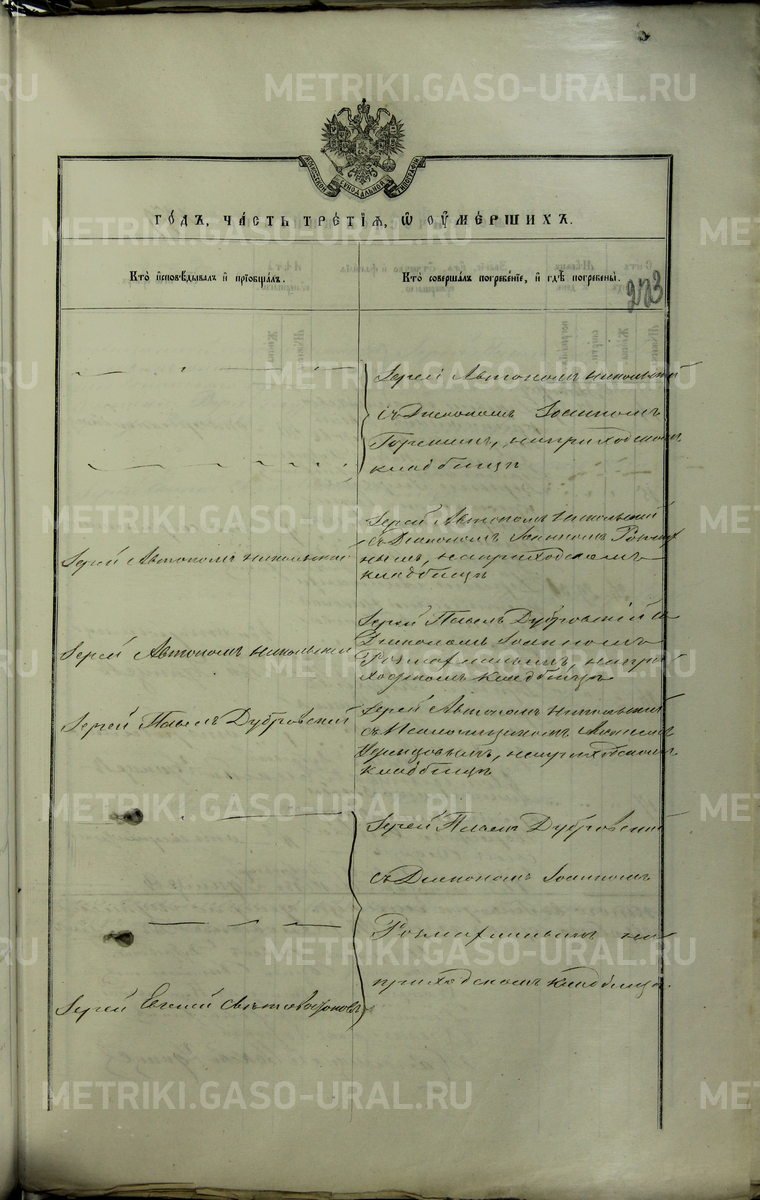 METRIKI.GASO-URAL.RU
МОСКОВСКОЙ СѴНОДАЛЬНОЙ ТИПОГРАФІИ
ГО́ДЪ, ЧА́СТЬ ТРЕ́ТІѦ, Ѡ ОУМЕ́РШИХЪ.
Кто̀ и҆сповѣ́дывалъ и҆ прїѡбща́лъ.
Кто̀ соверша́лъ погребе́нїе, и҆ гдѣ̀ погребены̀.
Іерей Автономъ Никольскій
съ Діакономъ Іоанномъ
на приходскомъ
кладбищѣ
Іерей Автономъ Никольскій
Іерей Автономъ Никольскій
съ Діакономъ Іоанномъ
на приходскомъ
кладбищѣ
Іерей Автономъ Никольскій
Іерей Павелъ Дубровскій съ
Діакономъ Іоанномъ
на прихо
дскомъ кладбищѣ
Іерей Павелъ Дубровскій
Іерей Автономъ Никольскій
съ Псаломщикомъ
на приходскомъ
кладбищѣ
Іерей Павелъ Дубровскій
съ Діакономъ Іоанномъ
на
приходскомъ кладбищѣ
Іерей Евгеній